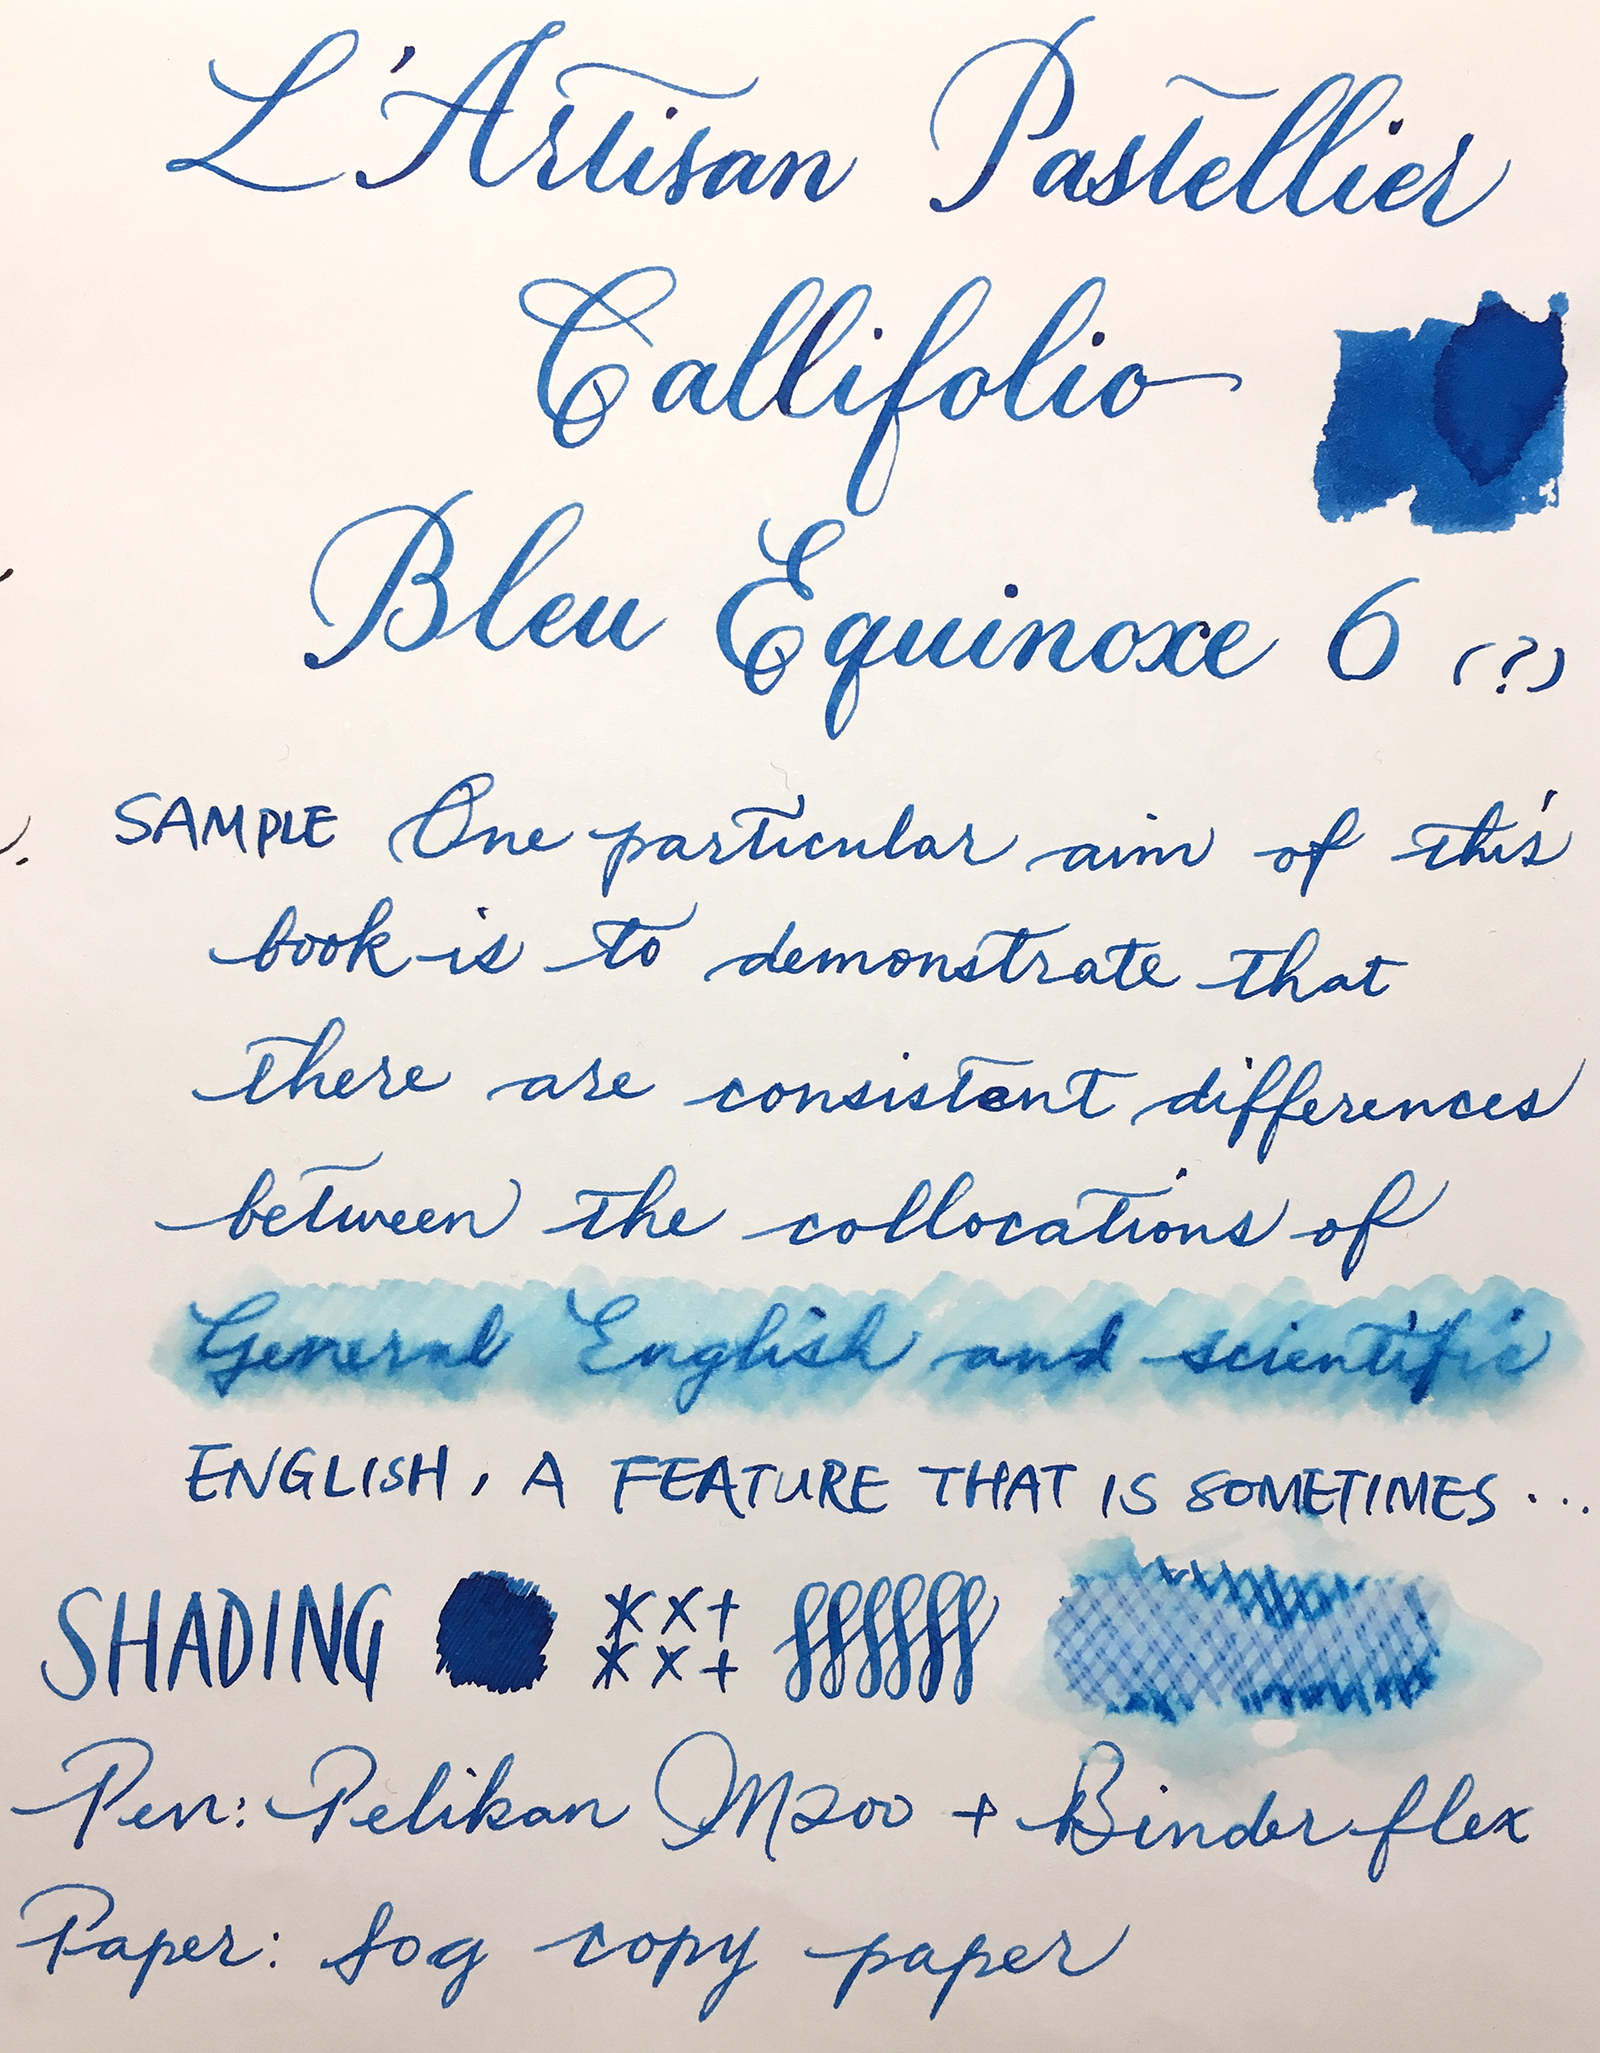 L'Artisan Pastellier
Callifolio
Bleu Equinoxe 6 (?)
SAMPLE One particular aim of this
book is to demonstrate that
there are consistent differences
between the collocations of
General English and scientific
ENGLISH, A FEATURE THAT IS SOMETIMES...
SHADING
Pen: Pelikan M200 + Binder flex
Paper: 80g copy paper